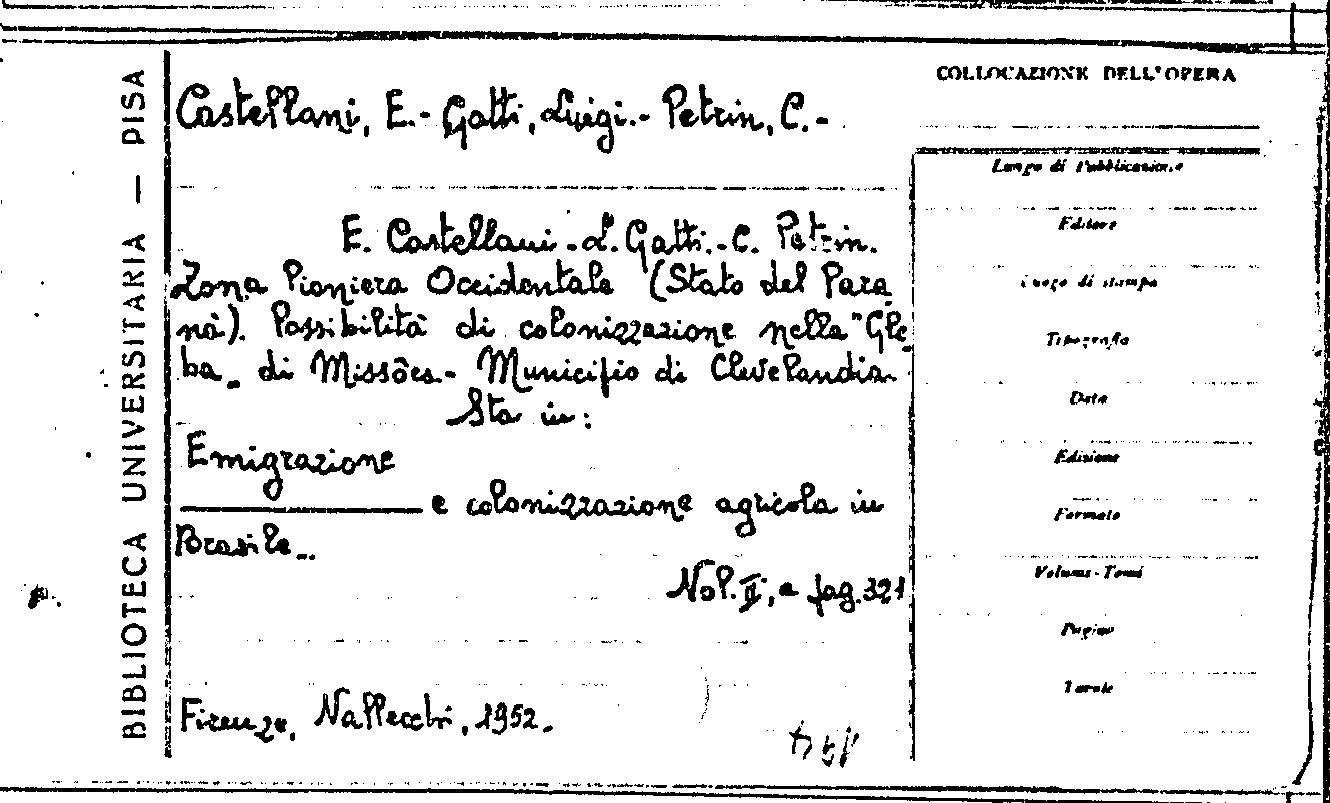 BIBLIOTECA UNIVERSITARIA — PISA
Castellani, E.- Gatti, Luigi.- Petrin, C.-
E. Castellani.-L. Gatti.-C. Petrin.
Zona Pioniera Occidentale (Stato del Para
nà). Possibilità di colonizzazione nella "Gle
ba„ di Missões.- Municipio di Clevelandia.
Sta in:
Emigrazione
e colonizzazione agricola in
Brasile..
Vol. II, a pag. 321
Firenze, Vallecchi, 1952.
COLLOCAZIONE DELL'OPERA
Luogo di Pubblicazione
Editore
Luogo di stampa
Tipografia
Data
Edizione
Formato
Volumi-Tomi
Pagine
Tavole